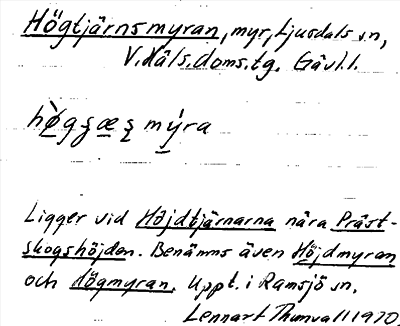 Högtjärnsmyran, myr, Ljusdals sn,
V. Häls. doms. tg. Gävl. l.
hø̀gʂæʂ mýra
Ligger vid Höjdtjärnarna nära Präst-
skogshöjden. Benämns även Höjdmyran
och Högmyran. Uppt. i Ramsjö sn.
Lennart Thunvall 1970.